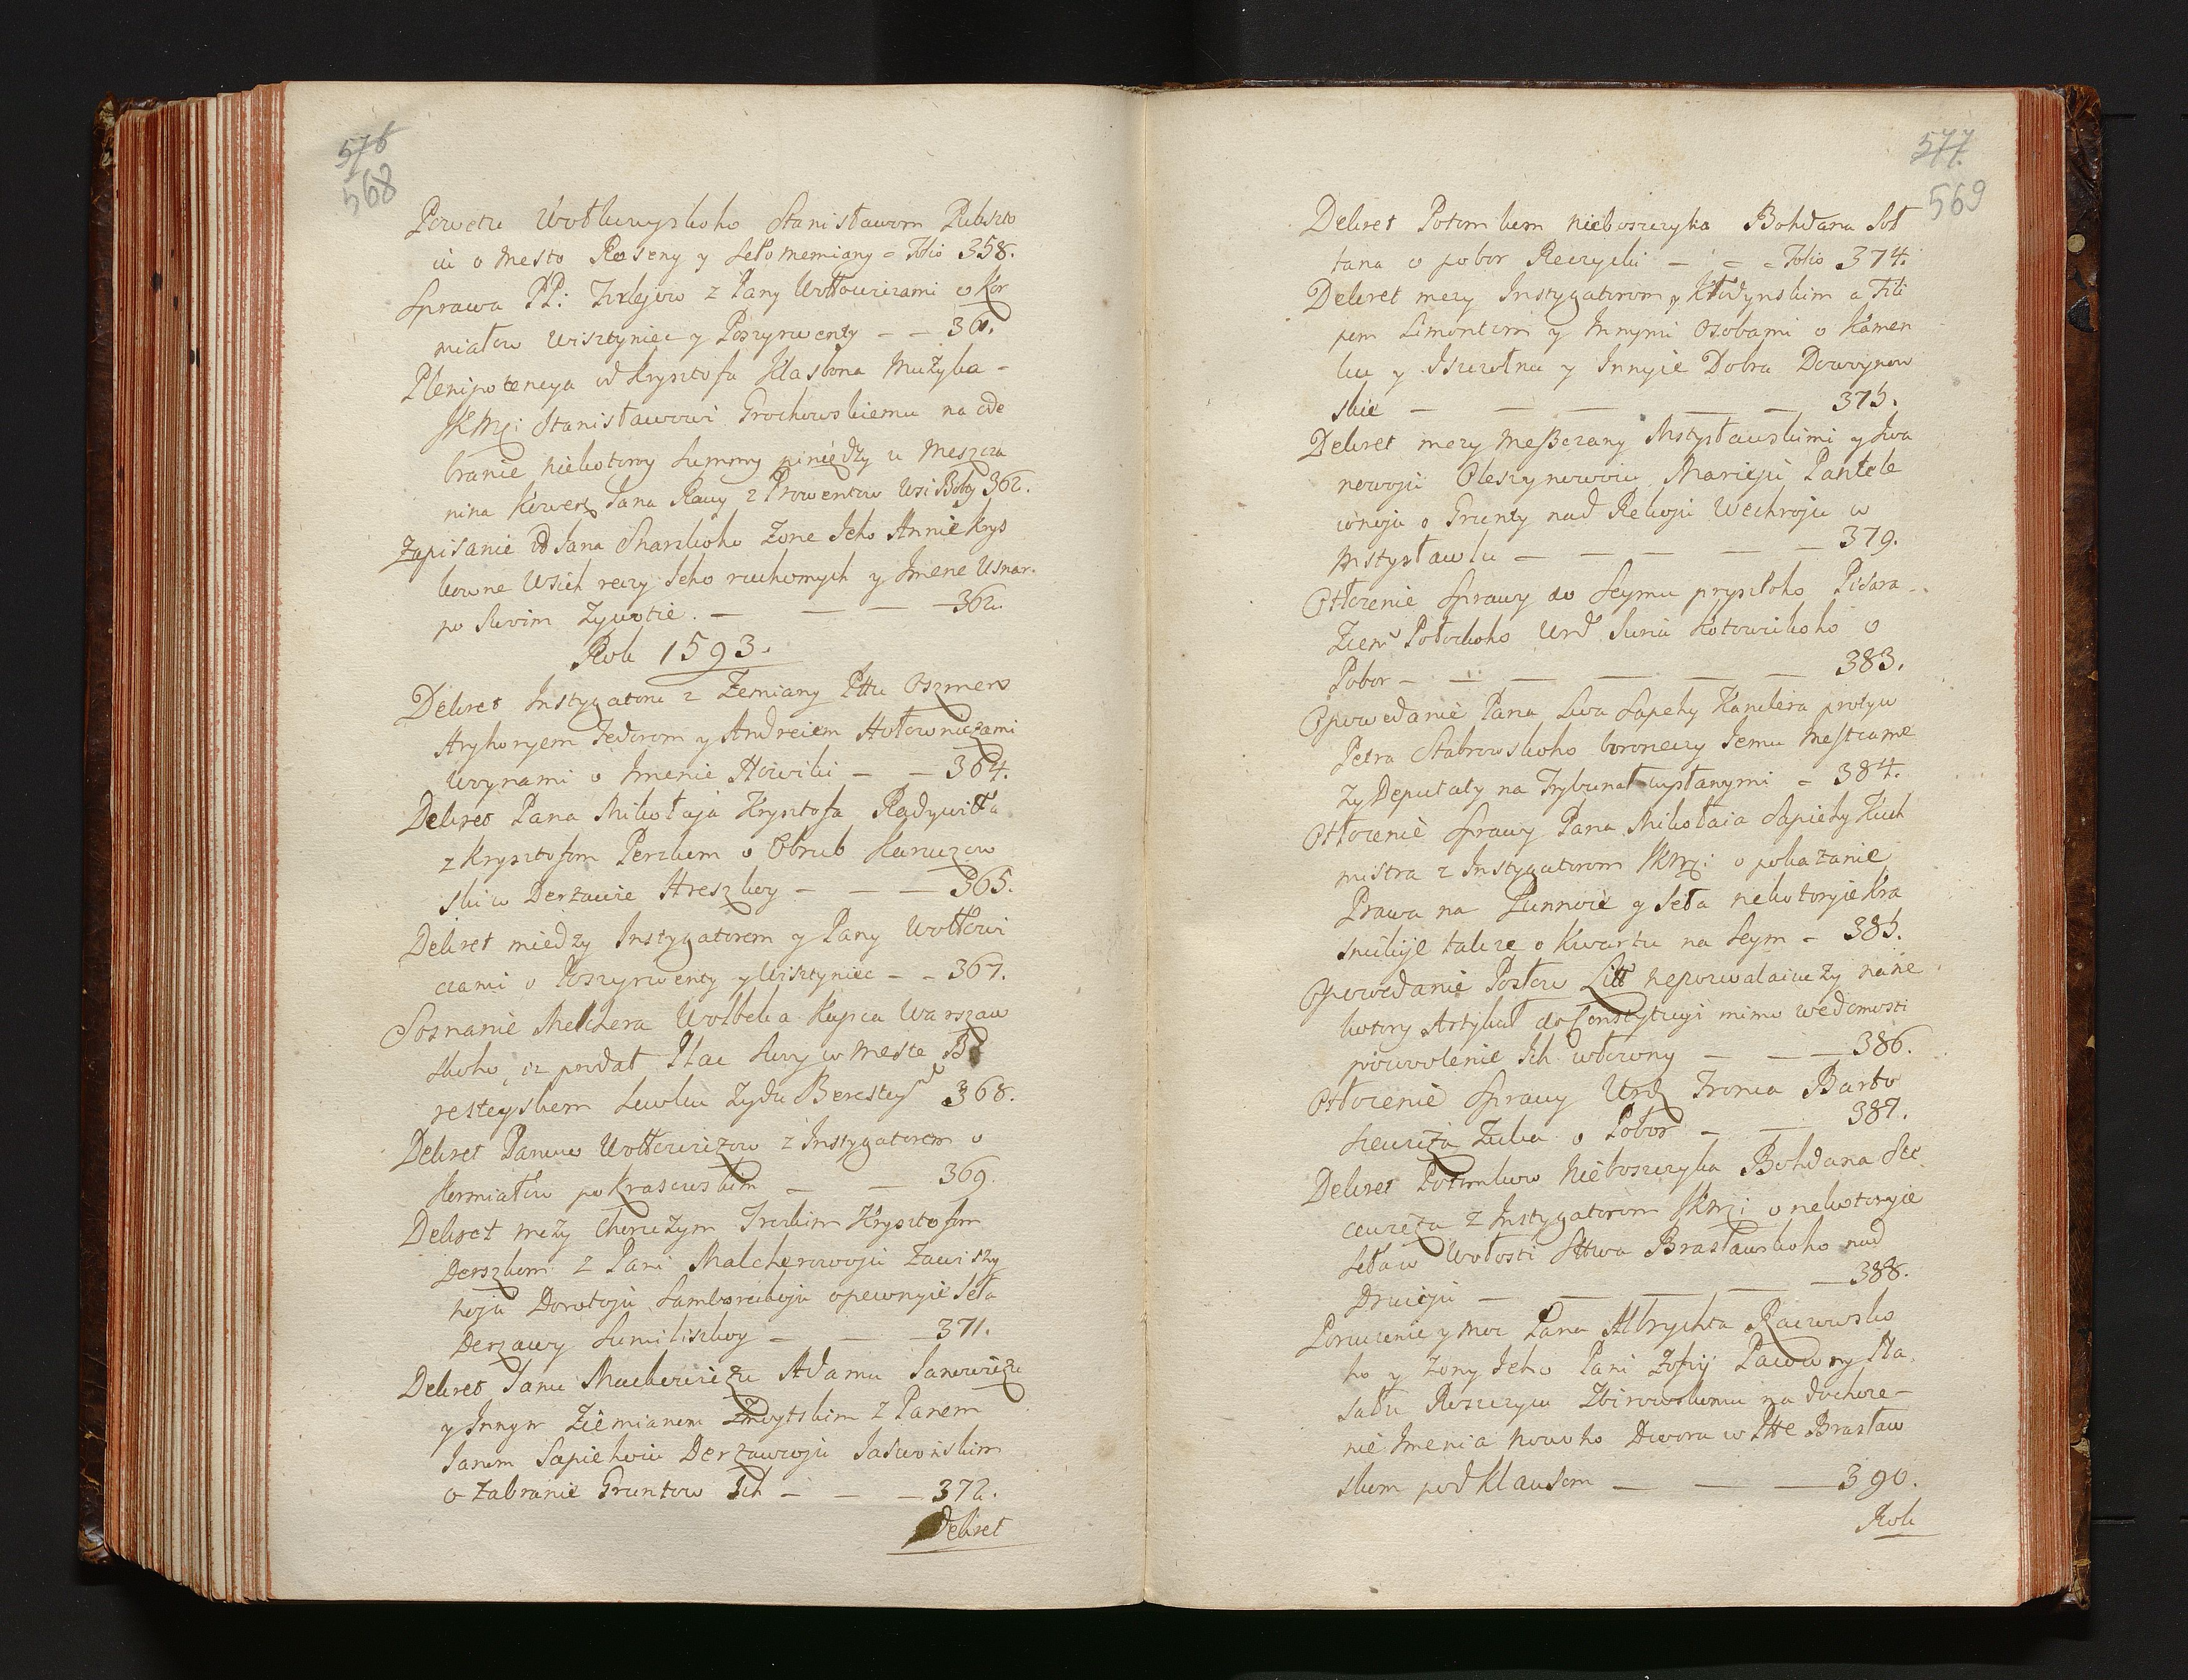 576
568
Powetu Wołkuwyskoho Stanisławom Rukszto
iu o Mesto Roseny y Seło Memiany = Folio 358.
Sprawa PP: Frelejow z Pany Wołłowiczami o Kor
miałow Wisztyniec y Poszyrwenty — — 361.
Plenipotencya od Krysztofa Klabona Muzyka -
JKMci Stanisławowi Grochowskiemu na ode
branie niekotory Summy piniędzy u Meszcza
nina Kowen Jana Rawy z Prowentow 362.
Zapisanie od Jana Skarskoho Zone Jeho Annie Krys
kowne Wsich reczy Jeho ruchomych y Imene Usnar.
po Swoim Zywotie. — — — 362.
Rok 1593.
Dekret Instygatoru z Zemiany Pttu Oszmens
Hryhoryem Fedorom y Andreiem Hołowniczami
Woynami o Imenie Howiki — — 364.
Dekret Pana Mikołaja Krysztofa Radywiłła
z Krysztofom Perskum o Obrub
ski w Derżawie Hreszkoy — — — 365.
Dekret miedzy Instygatorem y Pany Wołłowi
czami o Poszyrwenty y Wisztyniec — — 367.
Soznanie Melchera Wolbeka Kupca Warszaw
skoho, iz prodał Plac Swoy w Meste Be
resteyskom Lewku Zydu Beresteys 368.
Dekret Panow Wołłowiczow z Instygatorem o
Kormiałow po Krasowskim — — 369.
Dekret mezy Choruzym Trockim Krysztofom
Derszkom z Pani Malcherowoju Zawiszy
noju Dorotoju Samboreckoju o pewnyie Seła
Derzawy Sumiliszkoy — — — 371.
Dekret Janu Mackewiczu Adamu Janowiczu
y Innym Ziemianem Zmoytskim z Panem
Janom Sapiehoiu Derzawcoju Jaswońskim
o Zabranie Gruntow Ich — — — 372.
Dekret
577
569
Dekret Potomkum nieboszczyka Bohdana Soł
tana o pobor Reczycki — = = Folio 374.
Dekret mezy Instygatorom y Kłodynskim a Fili
pom Limontom y Innymi Osobami o Kamen
ku y Iszczołnu y Innyie Dobra Dowoynow
skie — — — — — 375.
Dekret mezy Meszczany Mstysławskimi y Iwa
nowoju Oleszynowoiu Marieju Pantele
iwnoju o Grunty nad Rekoju Wechroju w
Mstysławlu — — — — — 379.
Otłozenie Sprawy do Seymu pryszłoho Pisara -
Ziem Połockoho Urod Junu Kotowickoho o
Pobor — — — — — — 383.
Opowedanie Pana Lwa Sapehy Kanclera protyw
Petra Stabrowskoho boroneczy Jemu Mestcame
zy Deputaty na Trybunał wysłanymi = 384.
Otłozenie Sprawy Pana Mikołaia Sapiehy Kuch
mistra z Instygatorom JKMci o pokazanie
Prawa na Punnoie y Seła nekotoryie Kra
snickije takze o Kwartu na Seym = 385.
Opowedanie Posłow Litt nepozwalaiuczy na ne
kotory Artykuł do Constytucyi mimo wedomosti
pozwolenie Ich włozony — — — 386.
Otłozenie Sprawy Urod Ironia Barto
szewicza Zuka o Pobor — — 387.
Dekret Potomkow Nieboszczyka Bohdana Sec
cewicza z Instygatorom JKMci o nekotoryie
Seła w Wołosti Sttwa Brasławskoho nad
Druieju — — — — — 388.
Poruczenie y moc Pana Albrychta Raczewsko
ho y Zony Jeho Pani Zofij Pacowny Sta
sału Roszczycu Zbirowskomu na dochoze-
nie Imenia Nowoho Dworu w Ptte Brasław
skom pod Klausom — — — 390.
Rok